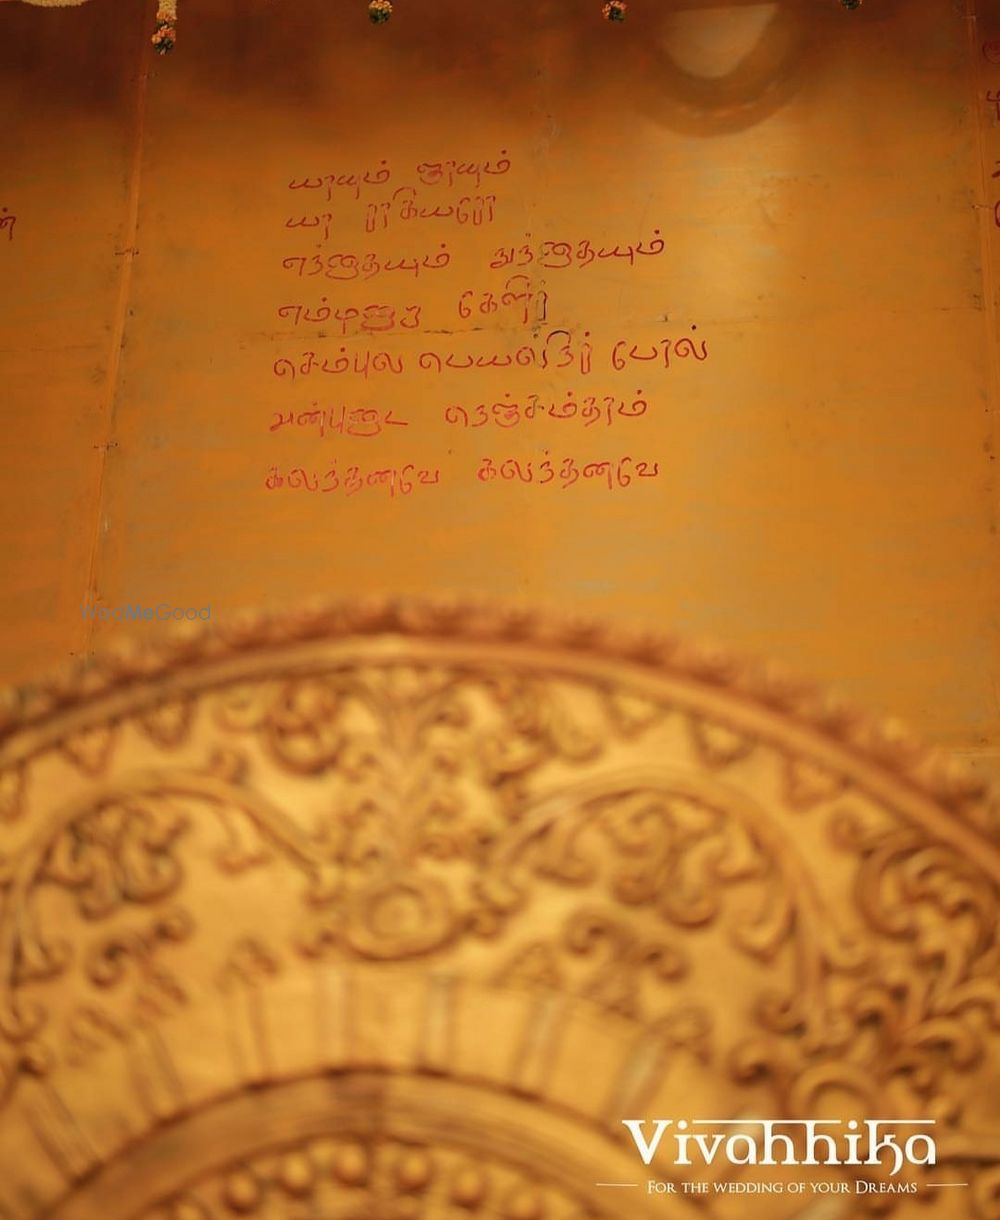 யாயும் ஞாயும்
யா ராகியரோ
எந்தையும் நுந்தையும்
எம்முறை கேளிர்
செம்புல பெயல்நீர் போல்
அன்புடை நெஞ்சம்தாம்
கலந்தனவே கலந்தனவே
WedMeGood
Vivahhika
FOR THE WEDDING OF YOUR DREAMS